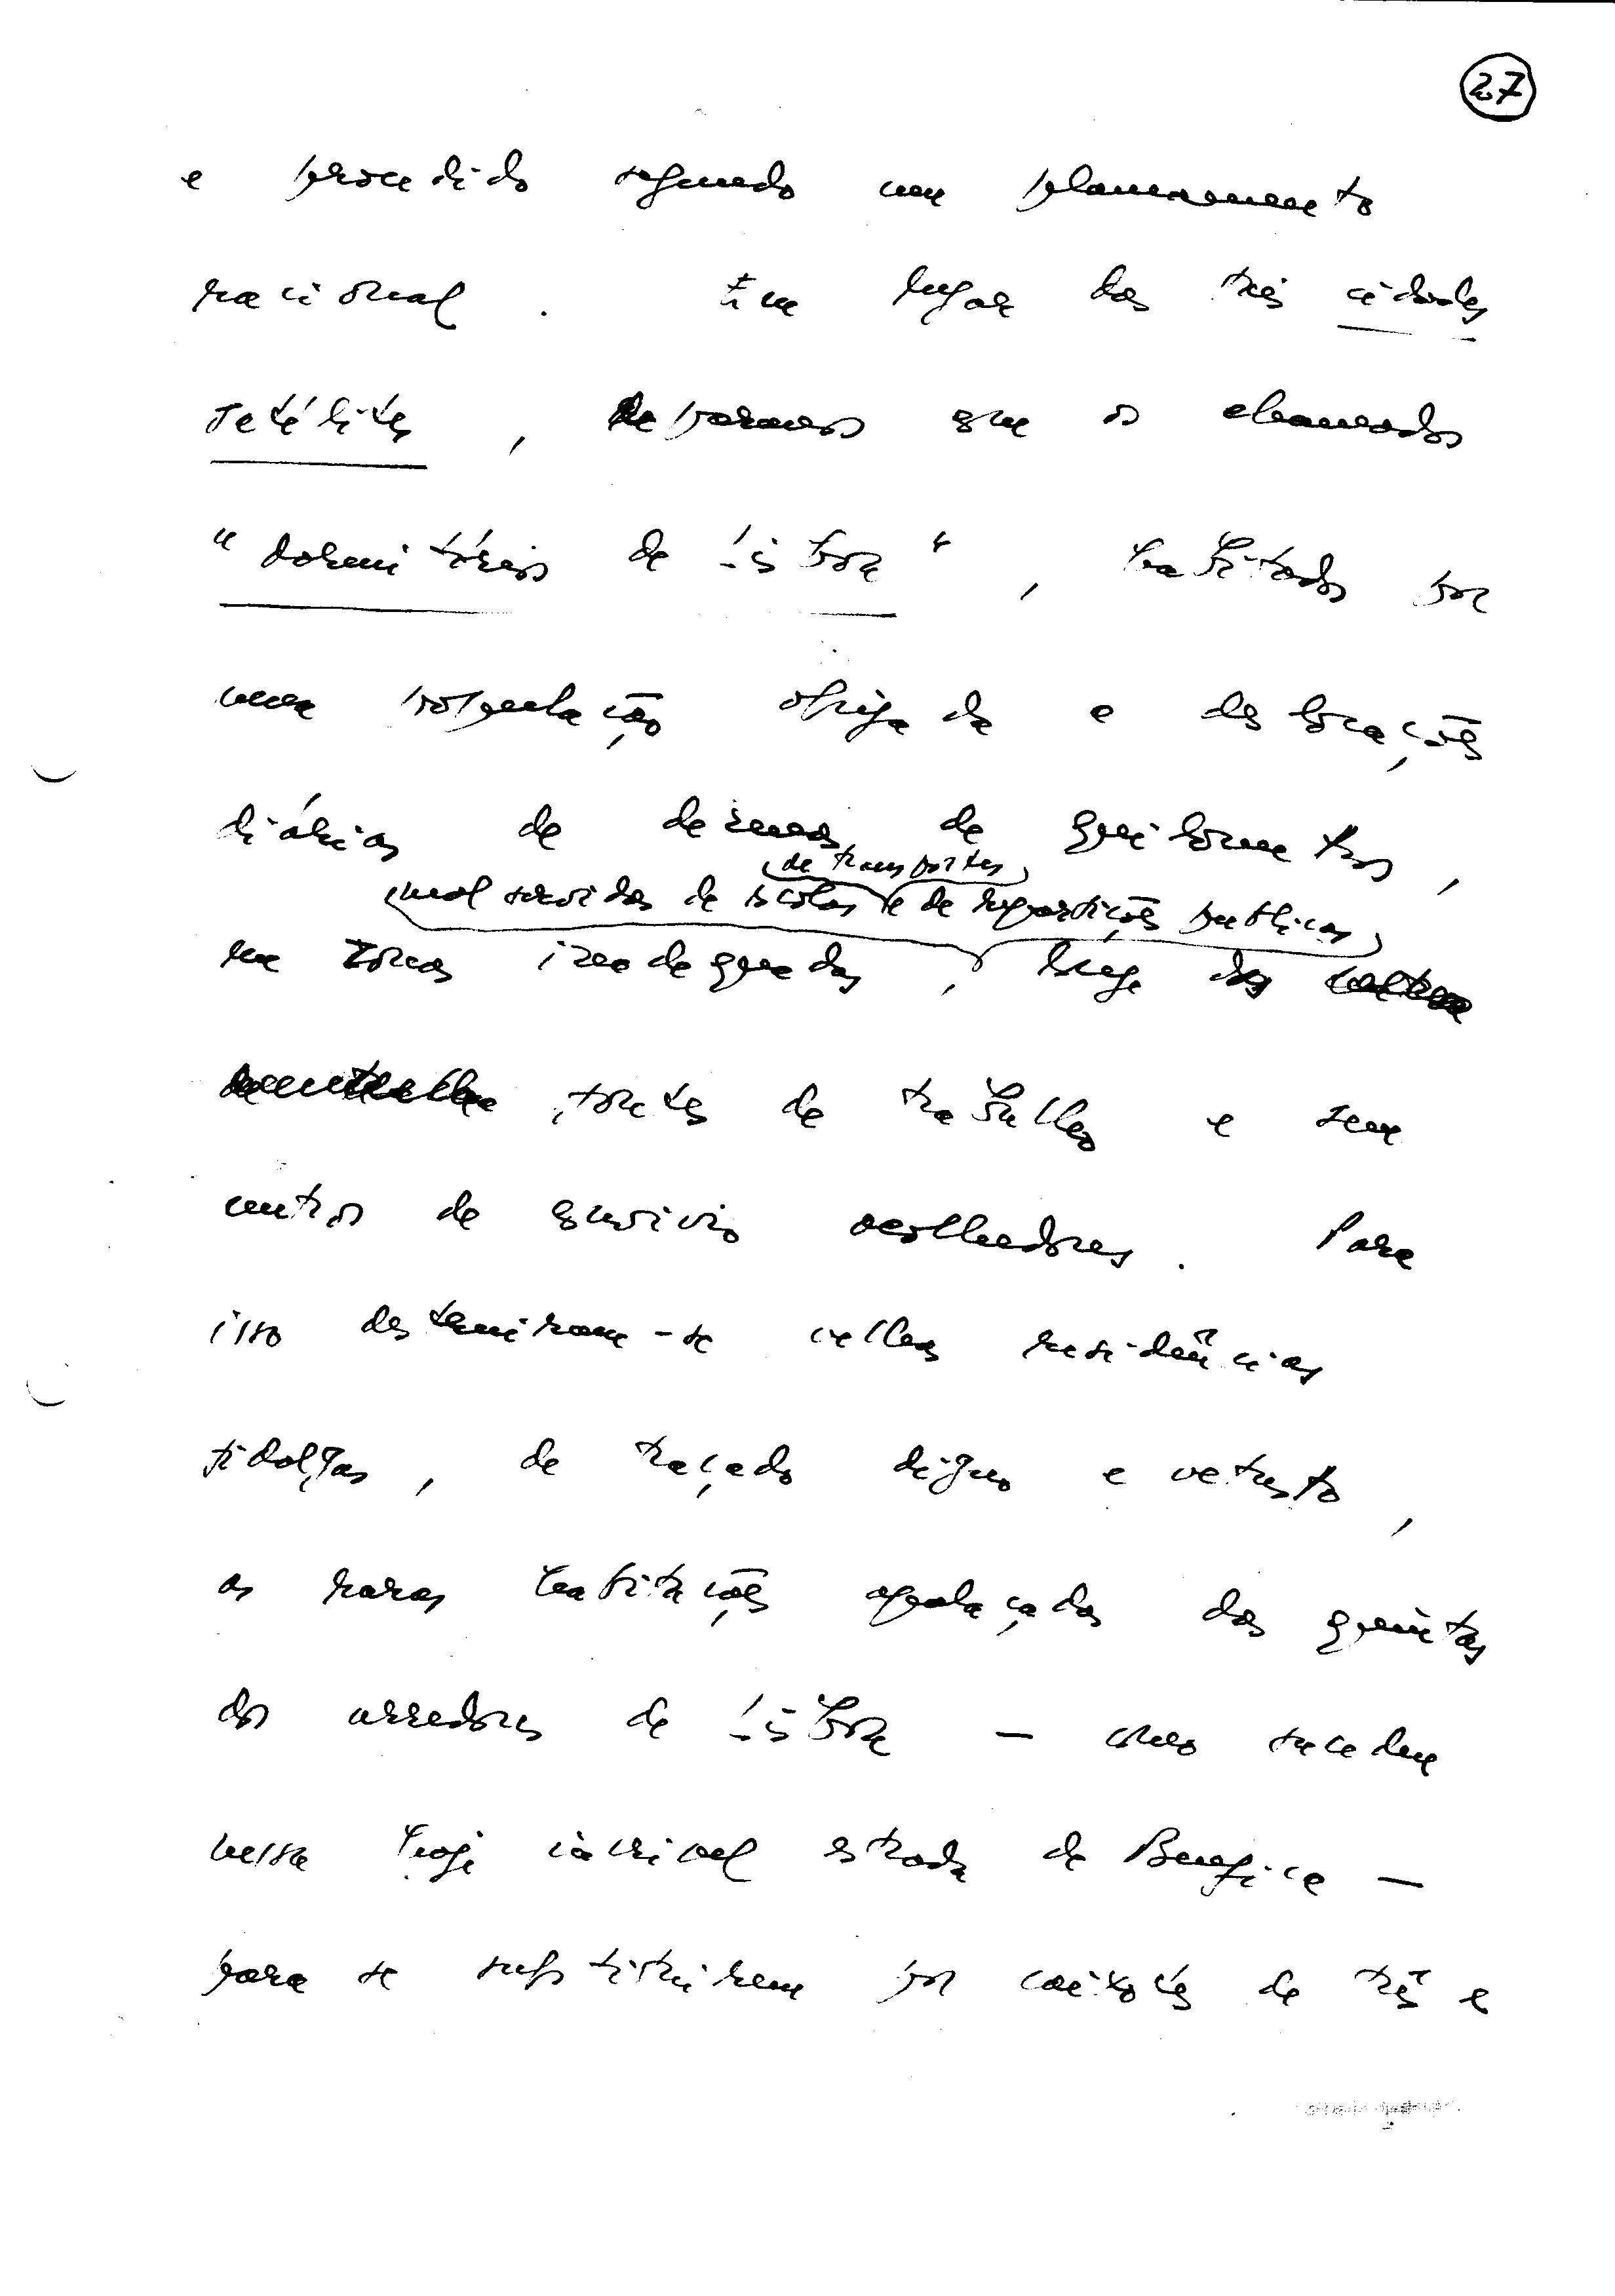 27
e procedido segundo um planeamento
racional. Em lugar das três cidades
satélites, deparamos que os chamados
"dormitórios de Lisboa", habitados por
uma população obrigada a deslocações
diárias de dezenas de quilómetros,
de transportes
mal servidas de escolas e de repartições públicas
em zonas inadequadas, longe das
fontes de trabalho e sem
centros de convívio acolhedores. Para
isso destruiram-se velhas residências
fidalgas, de traçado digno e vetusto,
as raras habitações apalaçadas das quintas
dos arredores de Lisboa — como sucedeu
nessa hoje incrível estrada de Benfica —
para se substituirem por caixotes de três e